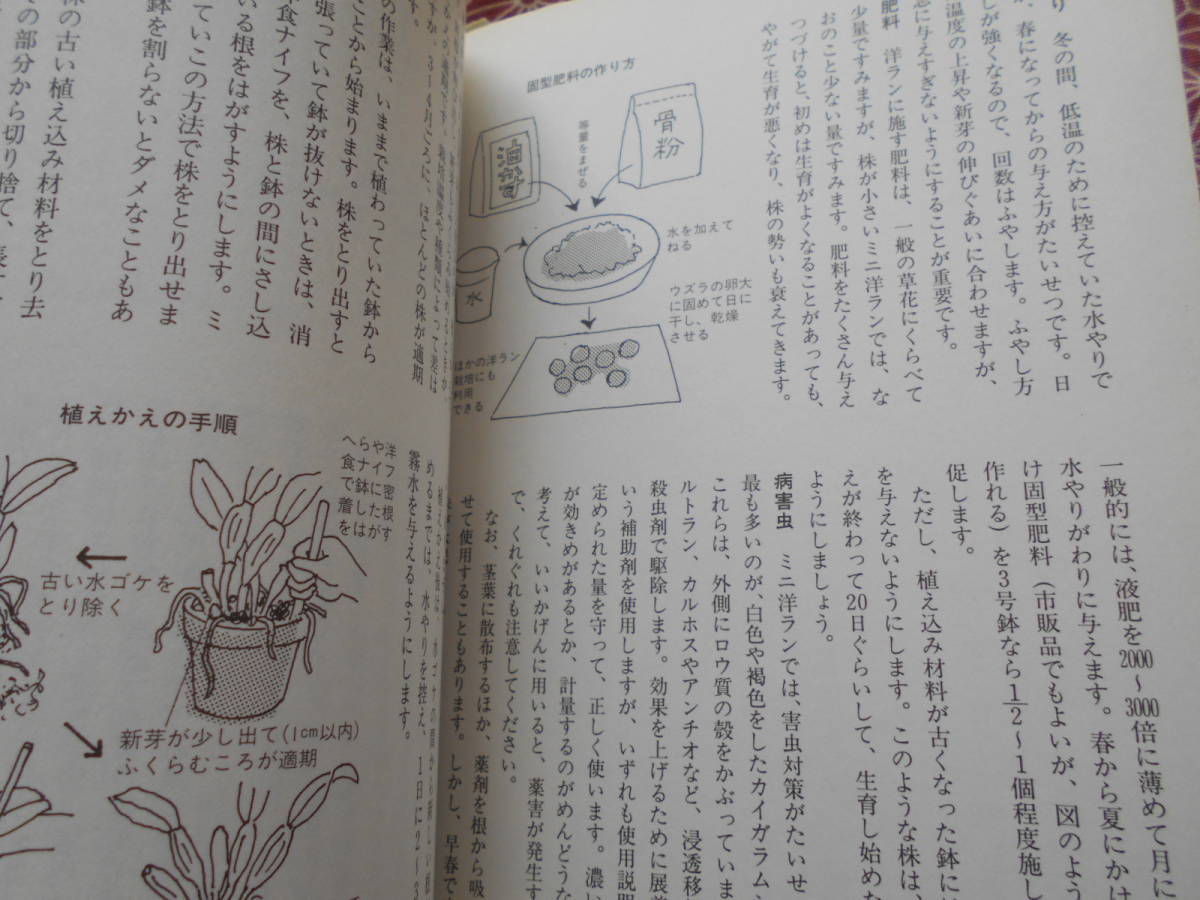 り　冬の間、低温のために控えていた水やりで
、春になってからの与え方がたいせつです。日
しが強くなるので、回数はふやします。ふやし方
温度の上昇や新芽の伸びぐあいに合わせますが、
急に与えすぎないようにすることが重要です。
肥料　洋ランに施す肥料は、一般の草花にくらべて
少量ですみますが、株が小さいミニ洋ランでは、な
おのこと少ない量ですみます。肥料をたくさん与え
つづけると、初めは生育がよくなることがあっても、
やがて生育が悪くなり、株の勢いも衰えてきます。
固型肥料の作り方
油かす
等量をまぜる
骨粉
水
水を加えて
ねる
ウズラの卵大
に固めて日に
干し、乾燥
させる
ほかの洋ラン
栽培にも
利用
できる
一般的には、液肥を2000〜3000倍に薄めて月に
水やりがわりに与えます。春から夏にかけ
け固型肥料（市販品でもよいが、図のよう
作れる）を3号鉢なら1/2〜1個程度施し
促します。
ただし、植え込み材料が古くなった鉢に
を与えないようにします。このような株は、
えが終わって20日ぐらいして、生育し始めた
ようにしましょう。
病害虫　ミニ洋ランでは、害虫対策がたいせ
最も多いのが、白色や褐色をしたカイガラム
これらは、外側にロウ質の殻をかぶっていま
ルトラン、カルホスやアンチオなど、浸透移
殺虫剤で駆除します。効果を上げるために展
いう補助剤を使用しますが、いずれも使用説明
定められた量を守って、正しく使います。濃い
が効きめがあるとか、計量するのがめんどうな
考えて、いいかげんに用いると、薬害が発生す
で、くれぐれも注意してください。
なお、茎葉に散布するほか、薬剤を根から吸
せて使用することもあります。しかし、早春で
3〜4月ごろに、ほとんどの株が適期
の作業は、いままで植わっていた鉢から
ことから始まります。株をとり出すと
張っていて鉢が抜けないときは、消
食ナイフを、株と鉢の間にさし込
いる根をはがすようにします。ミ
ていこの方法で株をとり出せま
鉢を割らないとダメなこともあ
株の古い植え込み材料をとり去
の部分から切り捨て、長
植えかえの手順
洋食
ナイフ
古い水ゴケを
とり除く
新芽が少し出て(1cm以内)
ふくらむころが適期
めるまでは、水やりを控え、1日に2〜3
霧水を与えるようにします。